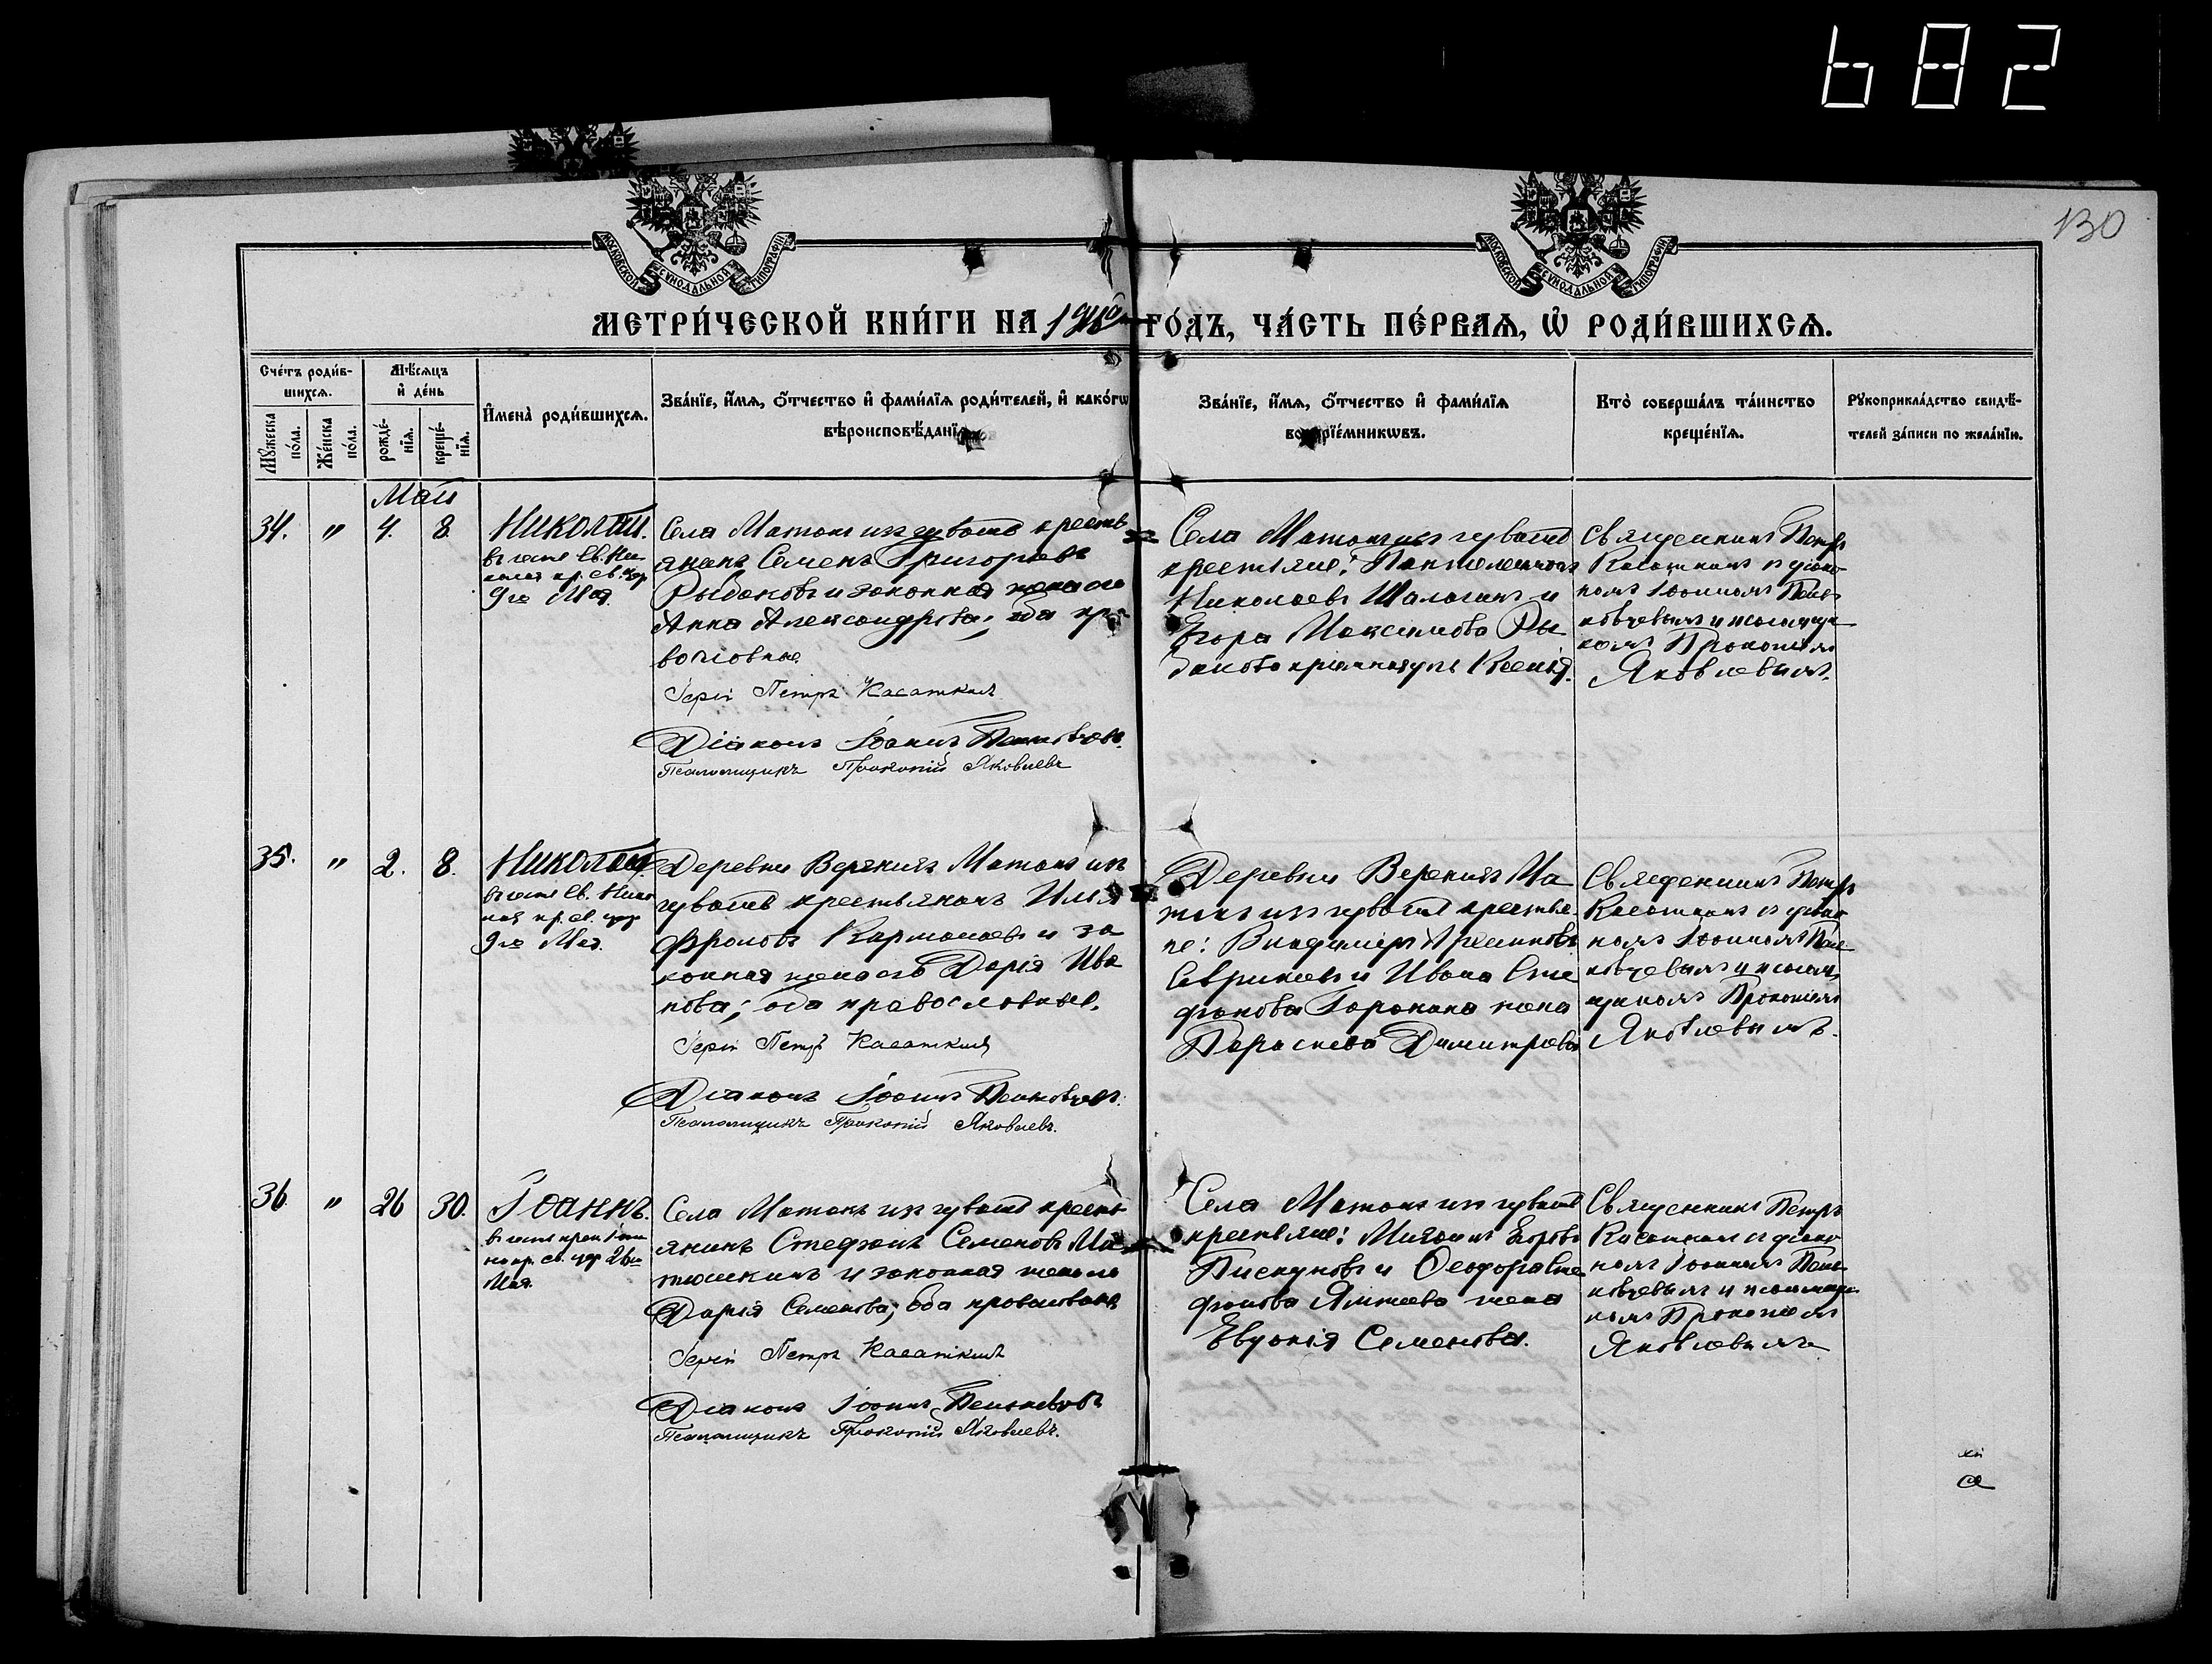 682
130
МОСКОВСКОЙ СѴНОДАЛЬНОЙ ТИПОГРАФІИ
МОСКОВСКОЙ СѴНОДАЛЬНОЙ ТИПОГРАФІИ
МЕТРИ́ЧЕСКОЙ КНИ́ГИ НА ГО́ДЪ, ЧА́СТЬ ПЕ́РВАЯ, Ѡ҆ РОДИ́ВШИХСЯ.
Сче́тъ роди́в-
шихся.
Мѣ́сяцъ
и҆ де́нь
Мꙋ́жеска
по́ла.
Же́нска
по́ла.
рожде́-
нїя.
креще́-
нїя.
И҆мена̀ роди́вшихся.
Зва́нїе, и҆́мя, ѻ҆́тчество и҆ фами́лїя роди́телей, и҆ како́гѡ
вѣроисповѣ́данїя.
Зва́нїе, и҆́мя, ѻ҆́тчество и҆ фами́лїя
воспрїе́мникѡвъ.
Кто̀ соверша́лъ та́инство
креще́нїя.
Рꙋкоприкла́дство свидѣ́-
телей за́писи по жела́нїю.
Май
34. " 4. 8. Николай.
въ честь Св. Ни-
колая пр. св. цер
9го Мая.
Села Матакъ изъ чувашъ кресть
янинъ Семенъ Григорьевъ
Рыбаковъ и законная жена его
Анна Александрова; оба пра
вославные.
Іерей Петръ Касаткинъ
Діаконъ Іоаннъ Пеньковцевъ.
Псаломщикъ Прокопій Яковлевъ
Села Матакъ изъ чувашъ
крестьяне: Пантелеимонъ
Николаевъ Шалагинъ и
Егора Максимова Ры
бакова Ксенія.
Священникъ Петръ
Касаткинъ съ діако-
номъ Іоанномъ Пень
ковцевымъ и псаломщи
комъ Прокопіемъ
Яковлевымъ.
35. " 2. 8. Николай
въ честь Св. Нико
лая пр. св. цер
9го Мая.
Деревни Верхнихъ Матакъ изъ
чувашъ крестьянинъ Илья
Фроловъ Кармалаевъ и за
конная жена его Дарія Ива
нова; оба православные.
Іерей Петръ Касаткинъ
Діаконъ Іоаннъ Пеньковцевъ.
Псаломщикъ Прокопій Яковлевъ.
Деревни Верхнихъ Ма
такъ изъ чувашъ крестья-
не: Владиміръ
и Ивана Сте
фанова жена
Параскева Димитріева
Священникъ Петръ
Касаткинъ съ діако
номъ Іоанномъ Пень
ковцевымъ и псалом
щикомъ Прокопіемъ
Яковлевымъ.
36. " 26 30. Іоаннъ.
въ честь Іоан
на пр. св. цер 26го
Мая.
Села Матакъ изъ чувашъ кресть
янинъ Стефанъ Семеновъ Ма
тюшкинъ и законная жена его
Дарія Семенова; оба православные
Іерей Петръ Касаткинъ
Діаконъ Іоаннъ Пеньковцевъ
Псаломщикъ Прокопій Яковлевъ.
Села Матакъ изъ чувашъ
крестьяне: Михаилъ Егоровъ
Пискуновъ и Ѳеодора Сте
фанова жена
Евдокія Семенова.
Священникъ Петръ
Касаткинъ съ діако
номъ Іоанномъ Пень
ковцевымъ и псаломщи
комъ Прокопіемъ
Яковлевымъ